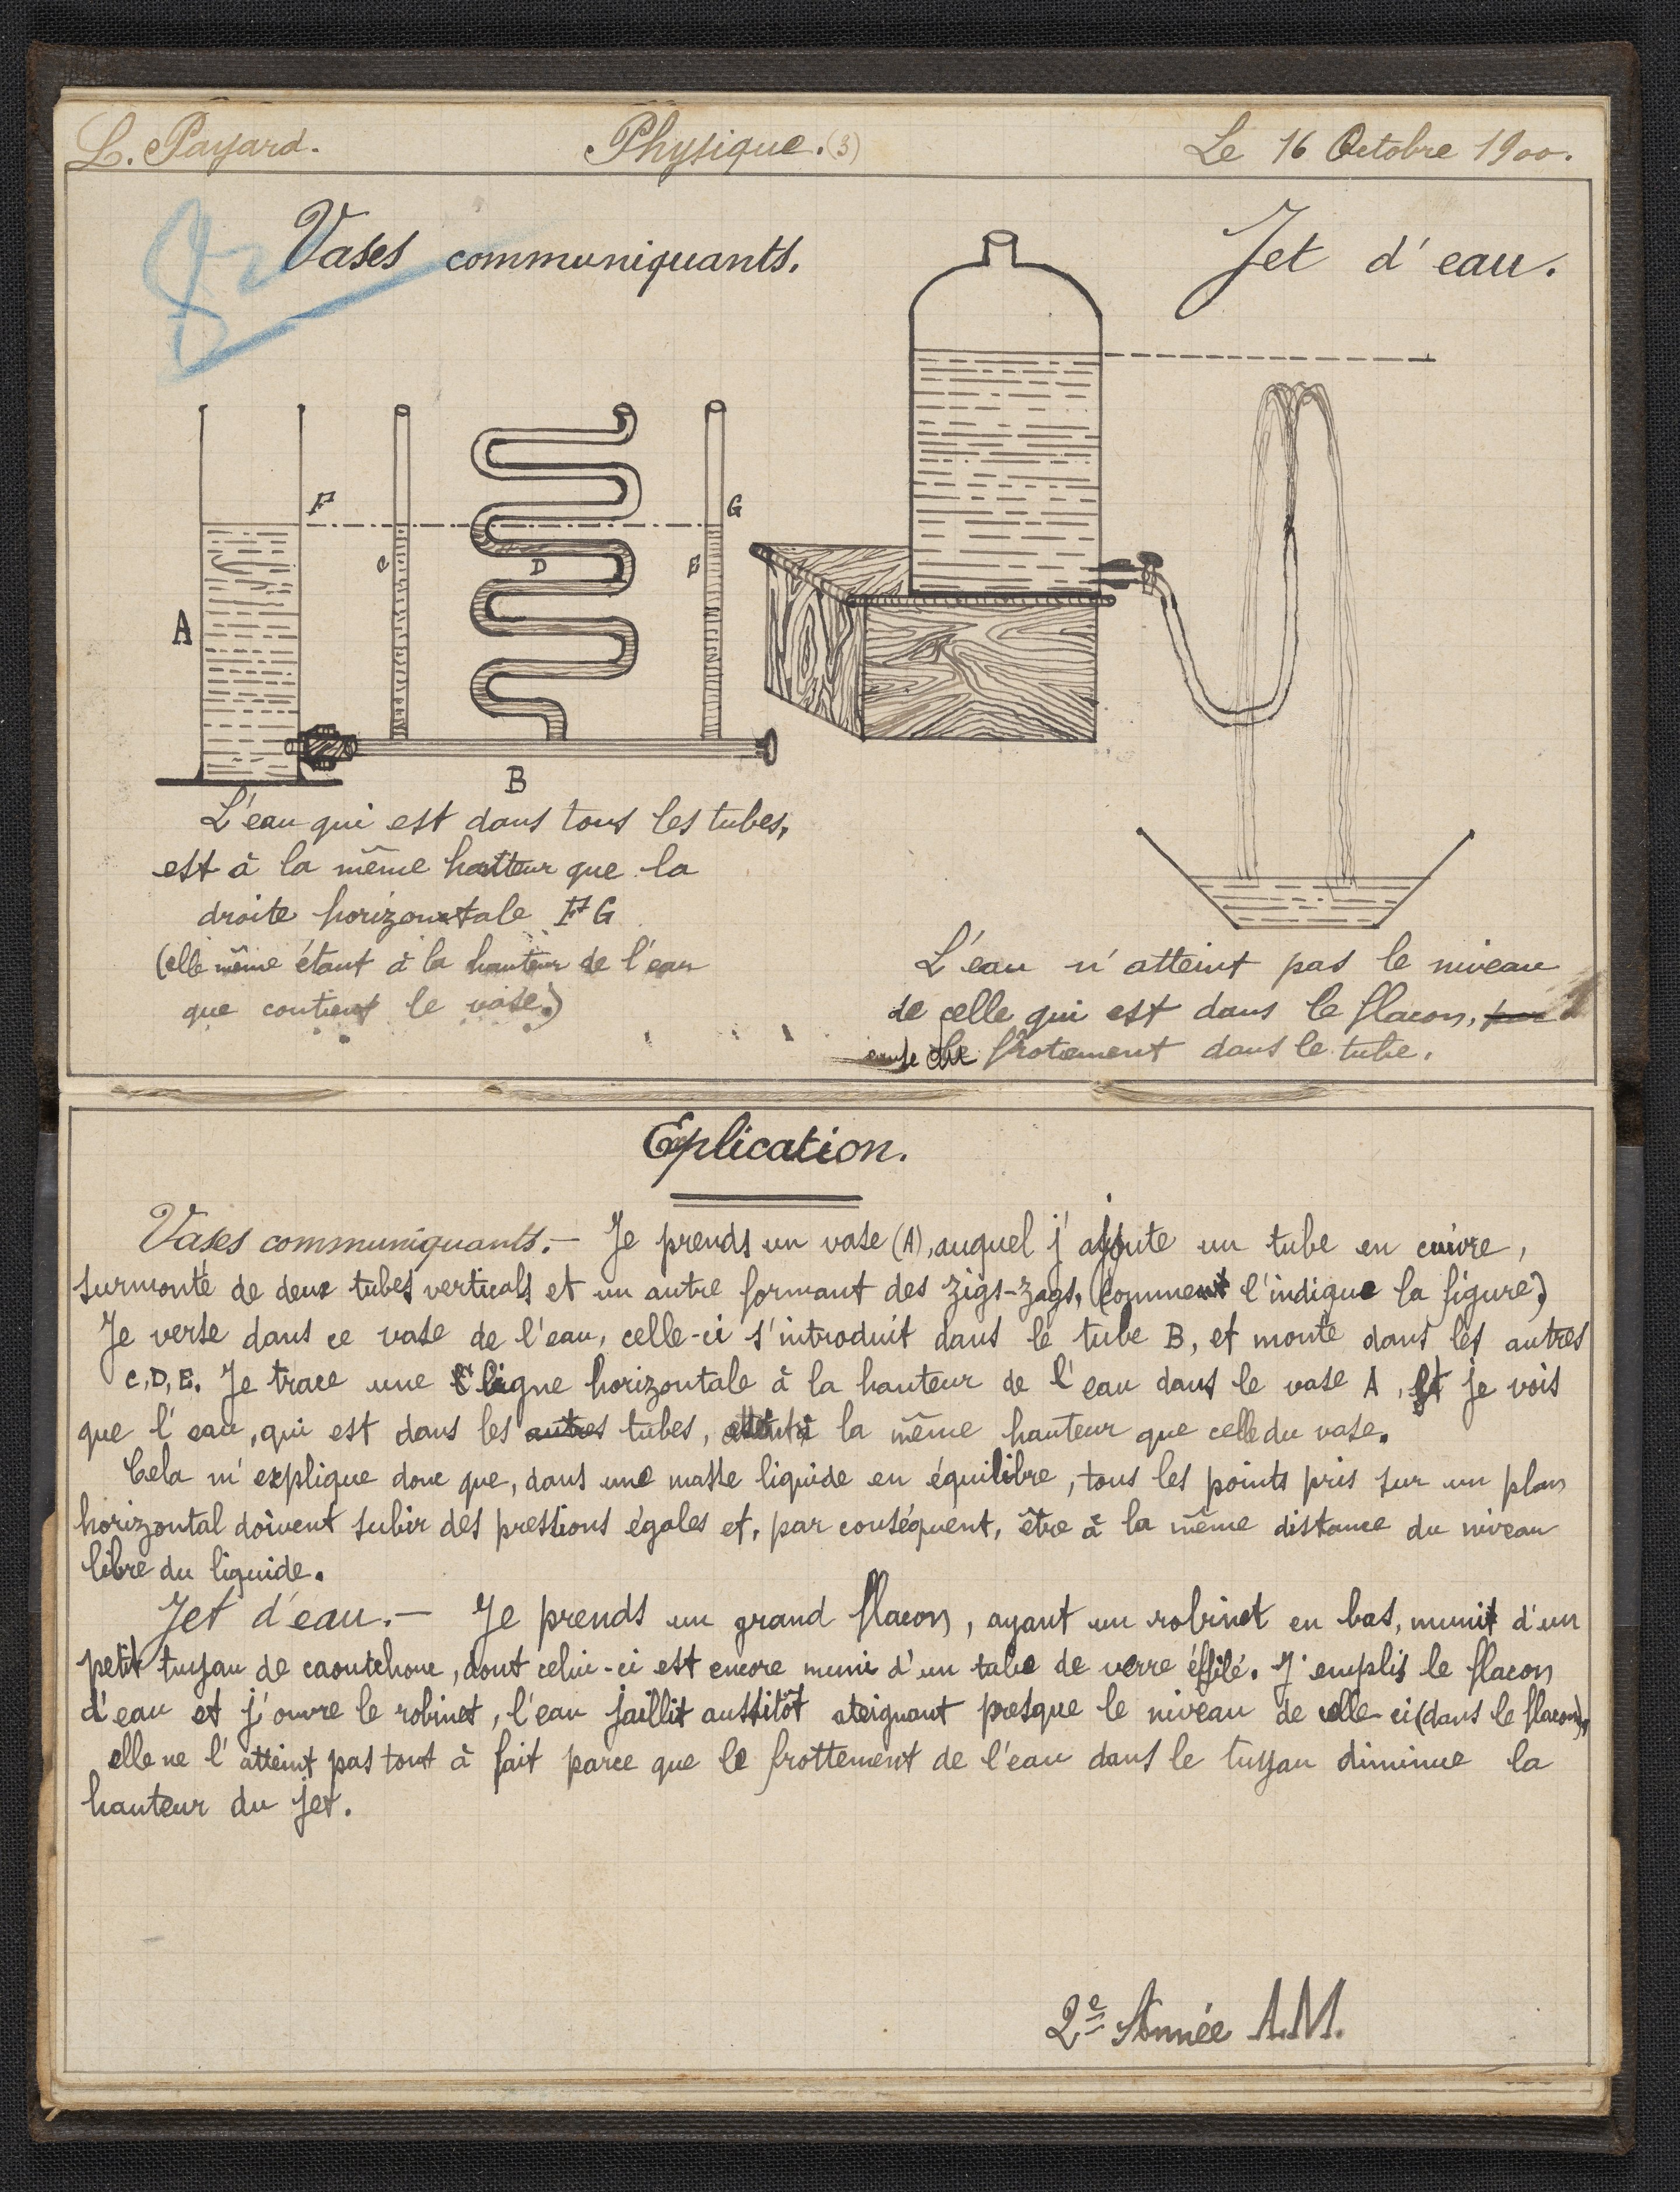 L. Payard.
Physique. (3)
Le 16 Octobre 1900.
Vases communiquants.
Jet d'eau.
F
G
C
D
E
A
B
L'eau qui est dans tous les tubes,
est à la même hauteur que la
droite horizontale FG
(elle même étant à la hauteur de l'eau
que contient le vase.)
L'eau n'atteint pas le niveau
de celle qui est dans le flacon,
cause de frotement dans le tube.
Eplication.
Vases communiquants.- Je prends un vase (A), auquel j'ajoute un tube en cuivre,
surmonté de deux tubes verticals et un autre formant des zigs-zags, (comme l'indique la figure)
Je verse dans ce vase de l'eau, celle-ci s'introduit dans le tube B, et monte dans les autres
C, D, E. Je trace une ligne horizontale à la hauteur de l'eau dans le vase A, et je vois
que l'eau, qui est dans les autres tubes, la même hauteur que celle du vase.
Cela m'explique donc que, dans une masse liquide en équilibre, tous les points pris sur un plan
horizontal doivent subir des pressions égales et, par conséquent, être à la même distance du niveau
libre du liquide.
Jet d'eau.- Je prends un grand flacon, ayant un robinet en bas, muni d'un
petit tuyau de caoutchouc, dont celui-ci est encore muni d'un tube de verre éffilé. J'emplis le flacon
d'eau et j'ouvre le robinet, l'eau jaillit aussitôt ateignant presque le niveau de celle-ci (dans le flacon),
elle ne l'atteint pas tout à fait parce que le frottement de l'eau dans le tuyau diminue la
hauteur du jet.
2e Année A.M.